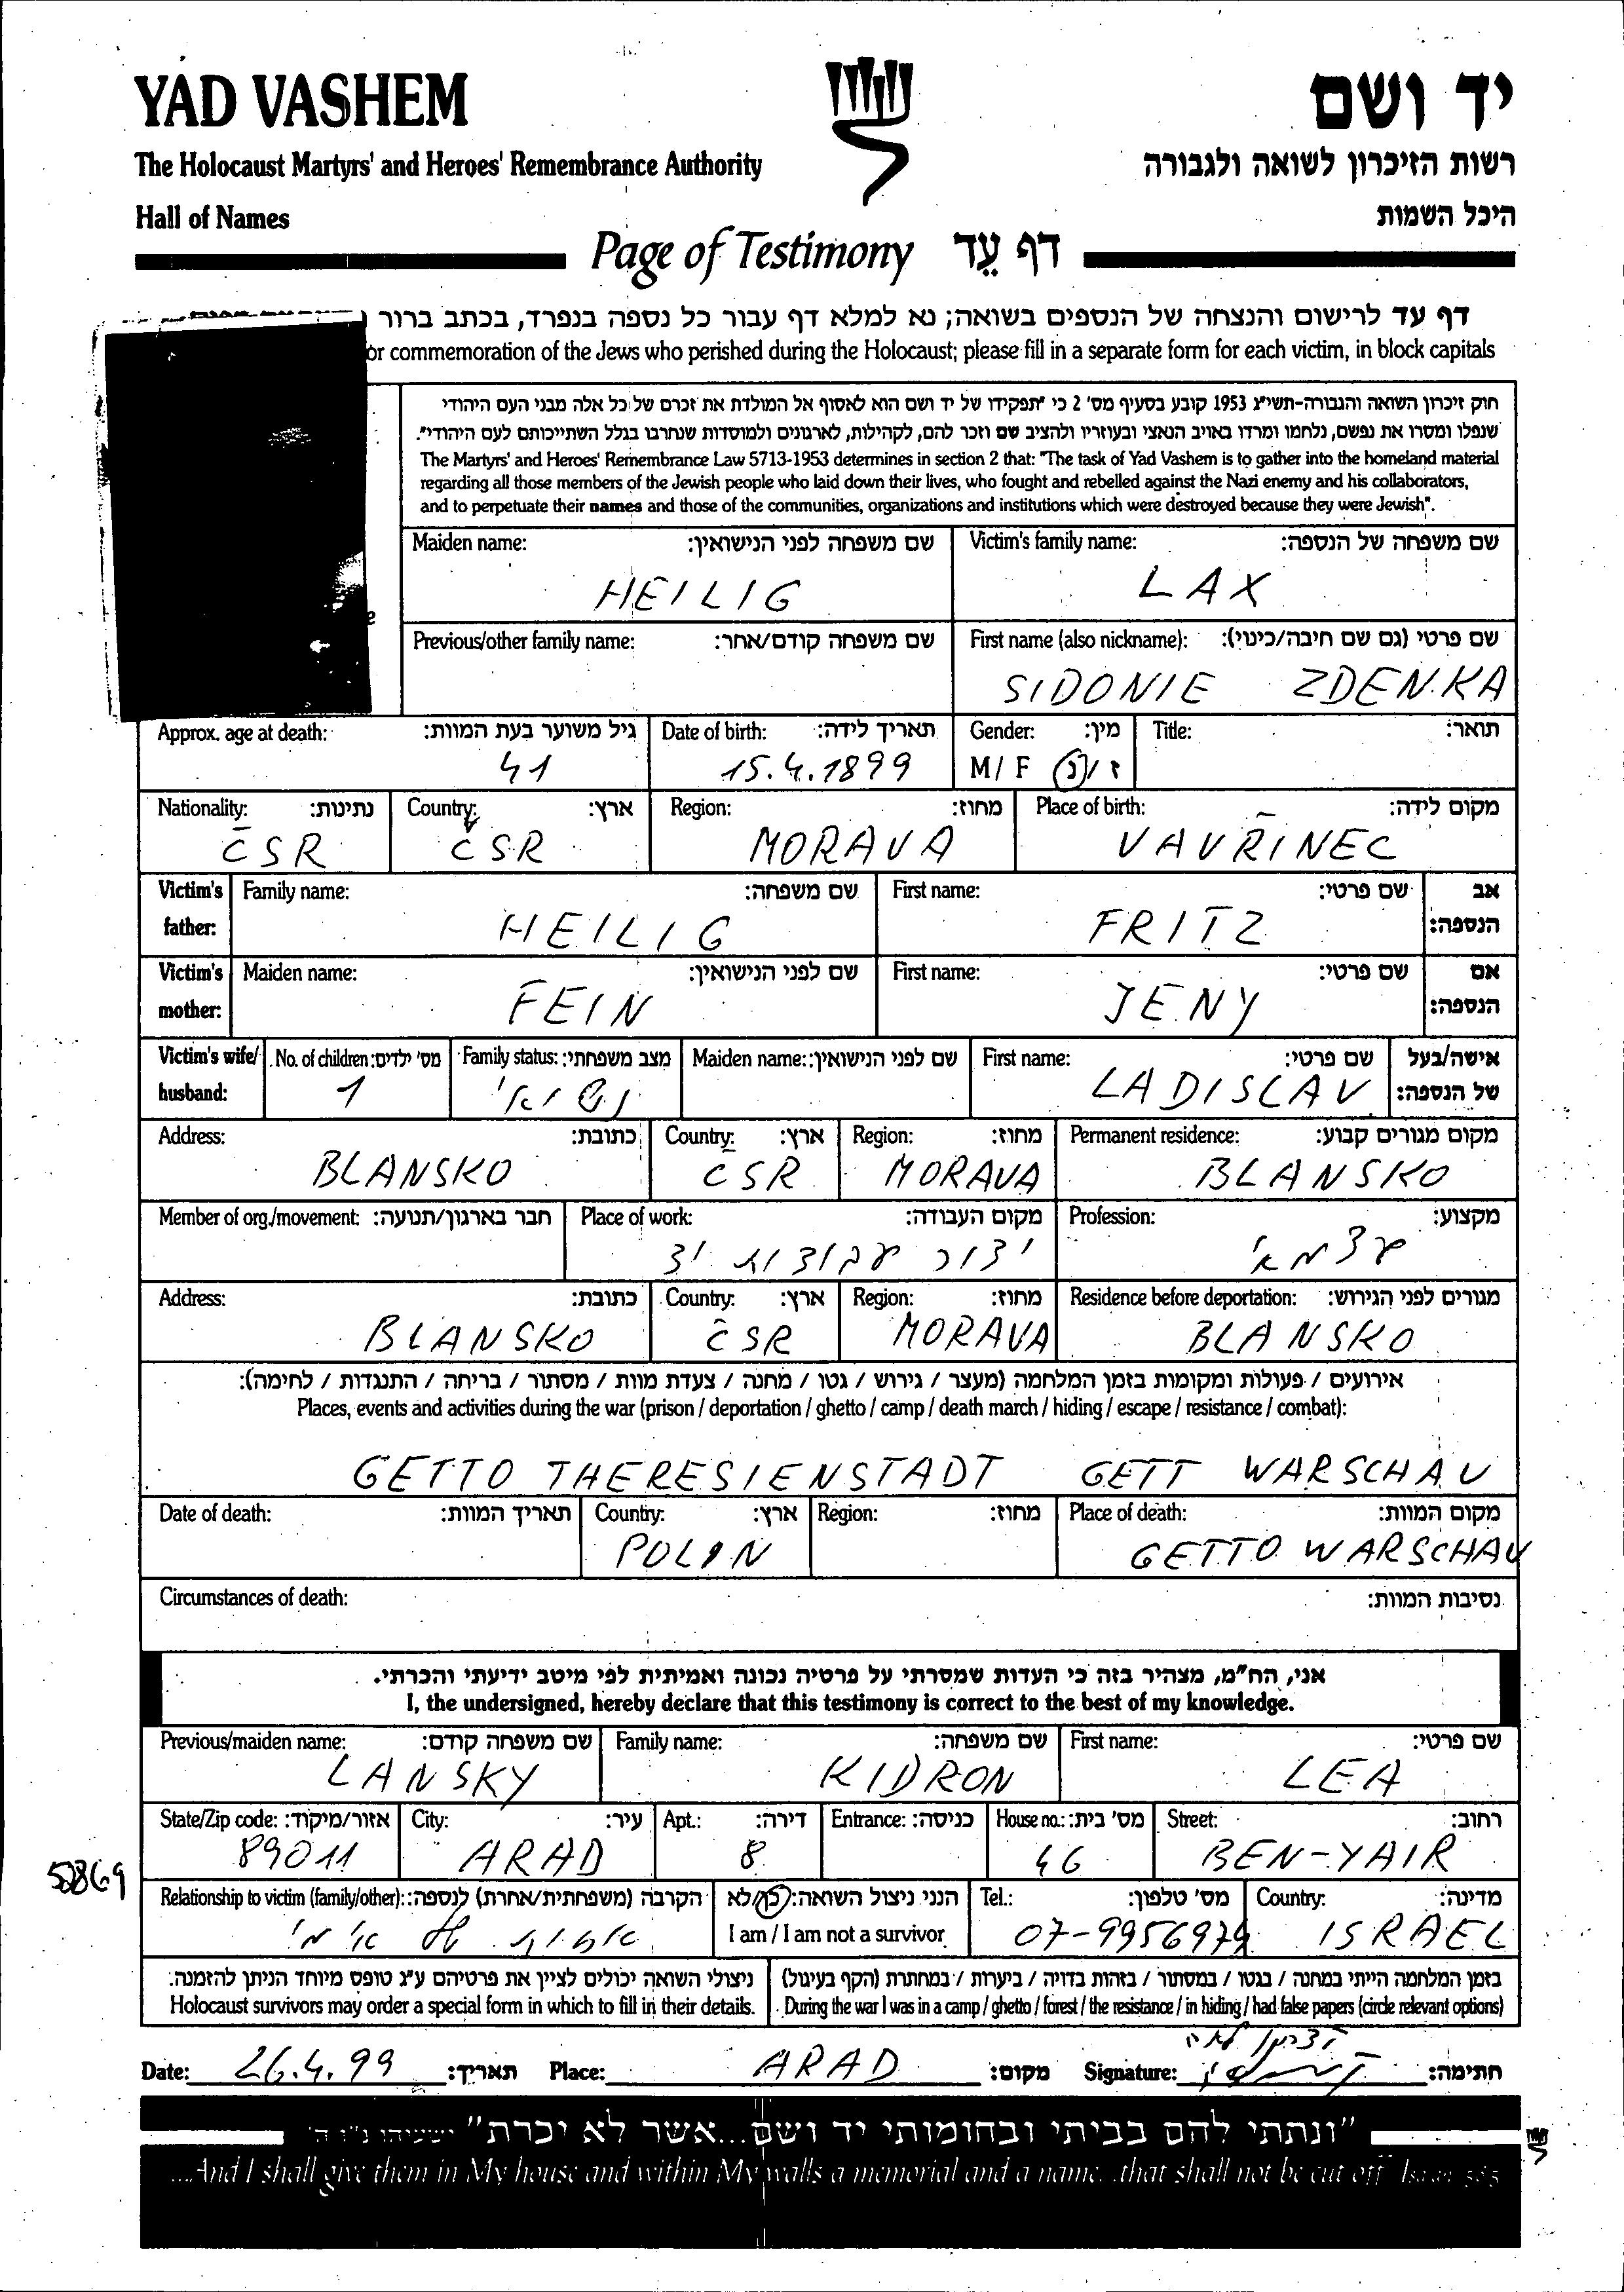 YAD VASHEM
יד ושם
The Holocaust Martyrs' and Heroes' Remembrance Authority
רשות הזיכרון לשואה ולגבורה
Hall of Names
היכל השמות
Page of Testimony דף עֵד
דף עד לרישום והנצחה של הנספים בשואה; נא למלא דף עבור כל נספה בנפרד, בכתב ברור
or commemoration of the Jews who perished during the Holocaust; please fill in a separate form for each victim, in block capitals
חוק זיכרון השואה והגבורה-תשי"ג 1953 קובע בסעיף מס' 2 כי "תפקידו של יד ושם הוא לאסוף אל המולדת את זכרם של כל אלה מבני העם היהודי
שנפלו ומסרו את נפשם, נלחמו ומרדו באויב הנאצי ובעוזריו ולהציב שם וזכר להם, לקהילות, לארגונים ולמוסדות שנחרבו בגלל השתייכותם לעם היהודי".
The Martyrs' and Heroes' Remembrance Law 5713-1953 determines in section 2 that: "The task of Yad Vashem is to gather into the homeland material
regarding all those members of the Jewish people who laid down their lives, who fought and rebelled against the Nazi enemy and his collaborators,
and to perpetuate their names and those of the communities, organizations and institutions which were destroyed because they were Jewish".
Maiden name: שם משפחה לפני הנישואין: Victim's family name: שם משפחה של הנספה:
HEILIG LAX
Previous/other family name: שם משפחה קודם/אחר: First name (also nickname): שם פרטי (גם שם חיבה/כינוי):
SIDONIE ZDENKA
Approx. age at death: גיל משוער בעת המוות: Date of birth: תאריך לידה: Gender: מין: Title: תואר:
41 15.4.1899 M/ F ז / נ
Nationality: נתינות: Country: ארץ: Region: מחוז: Place of birth: מקום לידה:
ČSR ČSR MORAVA VAVŘINEC
Victim's Family name: שם משפחה: First name: שם פרטי: אב
father: HEILIG FRITZ הנספה:
Victim's Maiden name: שם לפני הנישואין: First name: שם פרטי: אם
mother: FEIN JENY הנספה:
Victim's wife/ No. of children: מס' ילדים: Family status: מצב משפחתי: Maiden name: שם לפני הנישואין: First name: שם פרטי: אישה/בעל
husband: 1 נשואי LADISLAV של הנספה:
Address: כתובת: Country: ארץ: Region: מחוז: Permanent residence: מקום מגורים קבוע:
BLANSKO ČSR MORAVA BLANSKO
Member of org./movement: חבר בארגון/תנועה: Place of work: מקום העבודה: Profession: מקצוע:
יצור עבודות יד עצמאי
Address: כתובת: Country: ארץ: Region: מחוז: Residence before deportation: מגורים לפני הגירוש:
BLANSKO ČSR MORAVA BLANSKO
אירועים / פעולות ומקומות בזמן המלחמה (מעצר / גירוש / גטו / מחנה / צעדת מוות / מסתור / בריחה / התנגדות / לחימה):
Places, events and activities during the war (prison / deportation / ghetto / camp / death march / hiding / escape / resistance / combat):
GETTO THERESIENSTADT GETT WARSCHAU
Date of death: תאריך המוות: Country: ארץ: Region: מחוז: Place of death: מקום המוות:
POLIN GETTO WARSCHAU
Circumstances of death: נסיבות המוות:
אני, הח"מ, מצהיר בזה כי העדות שמסרתי על פרטיה נכונה ואמיתית לפי מיטב ידיעתי והכרתי.
I, the undersigned, hereby declare that this testimony is correct to the best of my knowledge.
Previous/maiden name: שם משפחה קודם: Family name: שם משפחה: First name: שם פרטי:
LANSKY KIDRON LEA
State/Zip code: אזור/מיקוד: City: עיר: Apt.: דירה: Entrance: כניסה: House no.: מס' בית: Street: רחוב:
89011 ARAD 8 46 BEN-YAIR
52869
Relationship to victim (family/other): הקרבה (משפחתית/אחרת) לנספה: הנני ניצול השואה: כן/לא Tel.: מס' טלפון: Country: מדינה:
אחות של אימי I am / I am not a survivor 07-9956979 ISRAEL
ניצולי השואה יכולים לציין את פרטיהם ע"ג טופס מיוחד הניתן להזמנה. בזמן המלחמה הייתי במחנה / בגטו / במסתור / בזהות בדויה / ביערות / במחתרת (הקף בעיגול)
Holocaust survivors may order a special form in which to fill in their details. During the war I was in a camp / ghetto / forest / the resistance / in hiding / had false papers (circle relevant options)
Date: 26.4.99 תאריך: Place: ARAD מקום: Signature: חתימה:
"ונתתי להם בביתי ובחומותי יד ושם...אשר לא יכרת" ישעיהו נ"ו ה'
...And I shall give them in My house and within My walls a memorial and a name...that shall not be cut off Isaiah 56:5